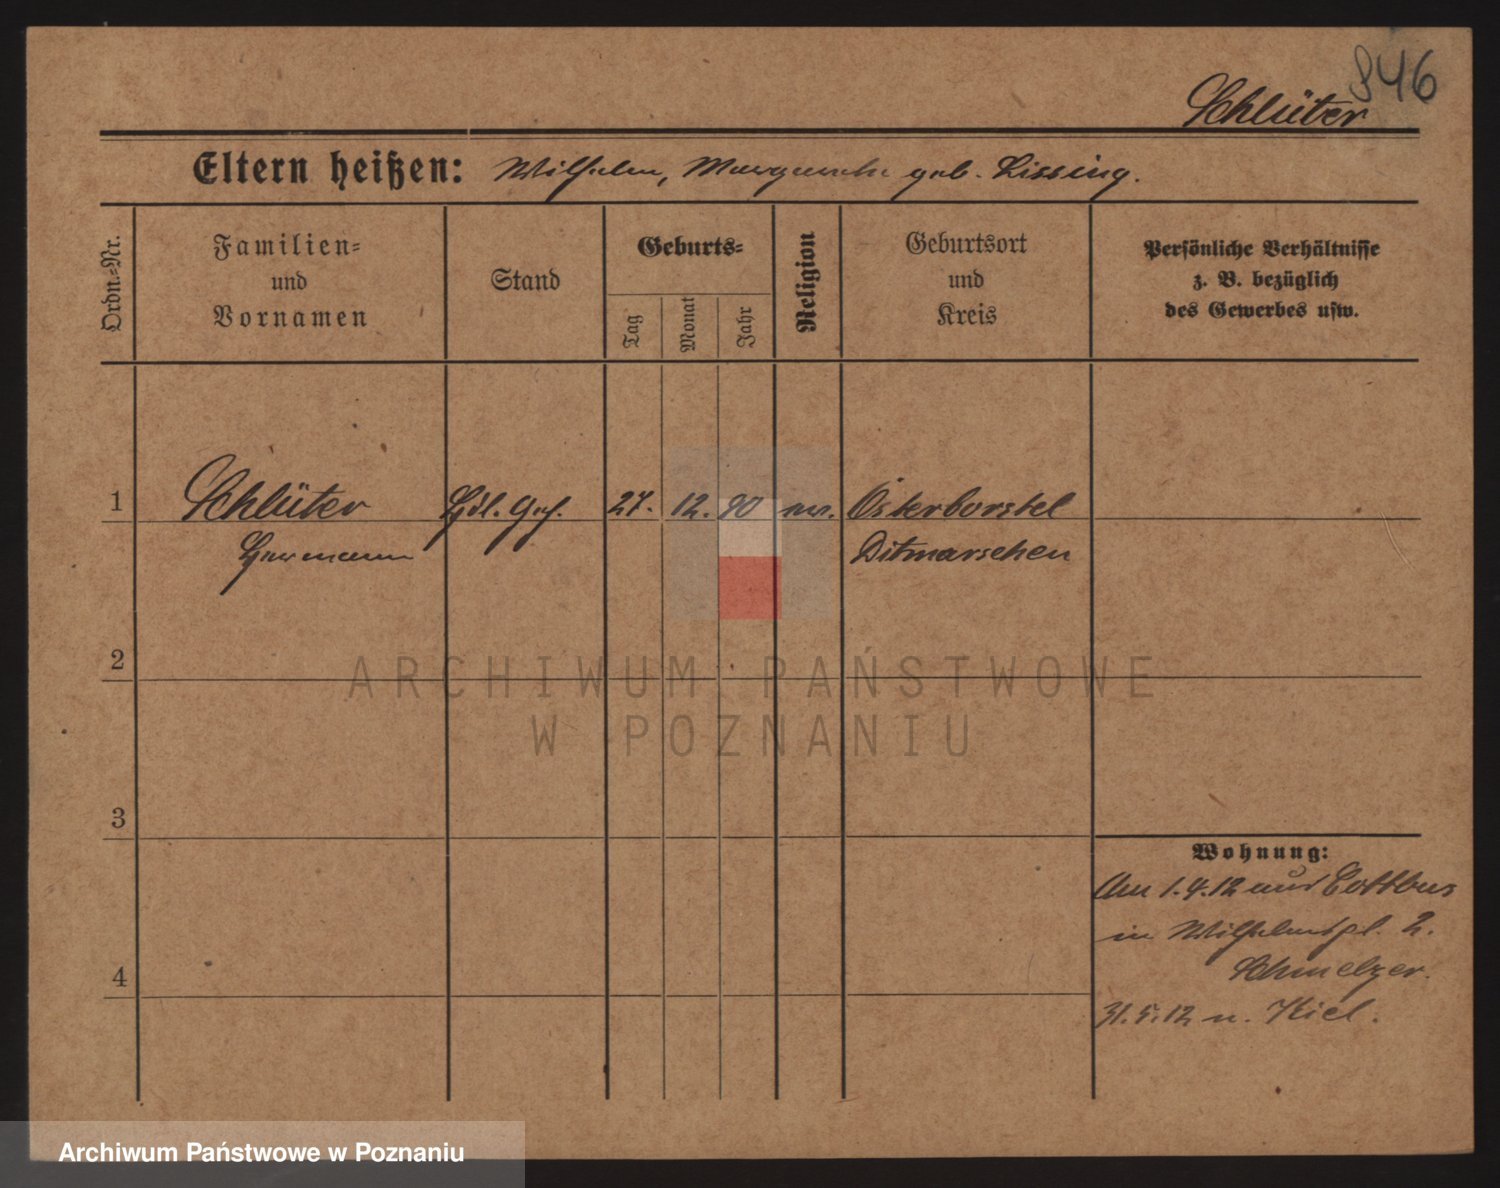 846
Schlüter
Eltern heißen: Wilhelm, Margarethe geb. Lissing.
Ordn.-Nr.
Familien-
und
Vornamen
Stand
Geburts-
Tag
Monat
Jahr
Religion
Geburtsort
und
Kreis
Persönliche Verhältnisse
z. B. bezüglich
des Gewerbes usw.
1 Schlüter Hdl. Geh. 27. 12. 90 ev. Osterborstel
Hermann Ditmarschen
2
ARCHIWUM PAŃSTWOWE
W POZNANIU
3
Wohnung:
Am 1.4.12 aus Cottbus
in Wilhelmspl. 2.
Schmelzer.
4
31.5.12 n. Kiel.
Archiwum Państwowe w Poznaniu